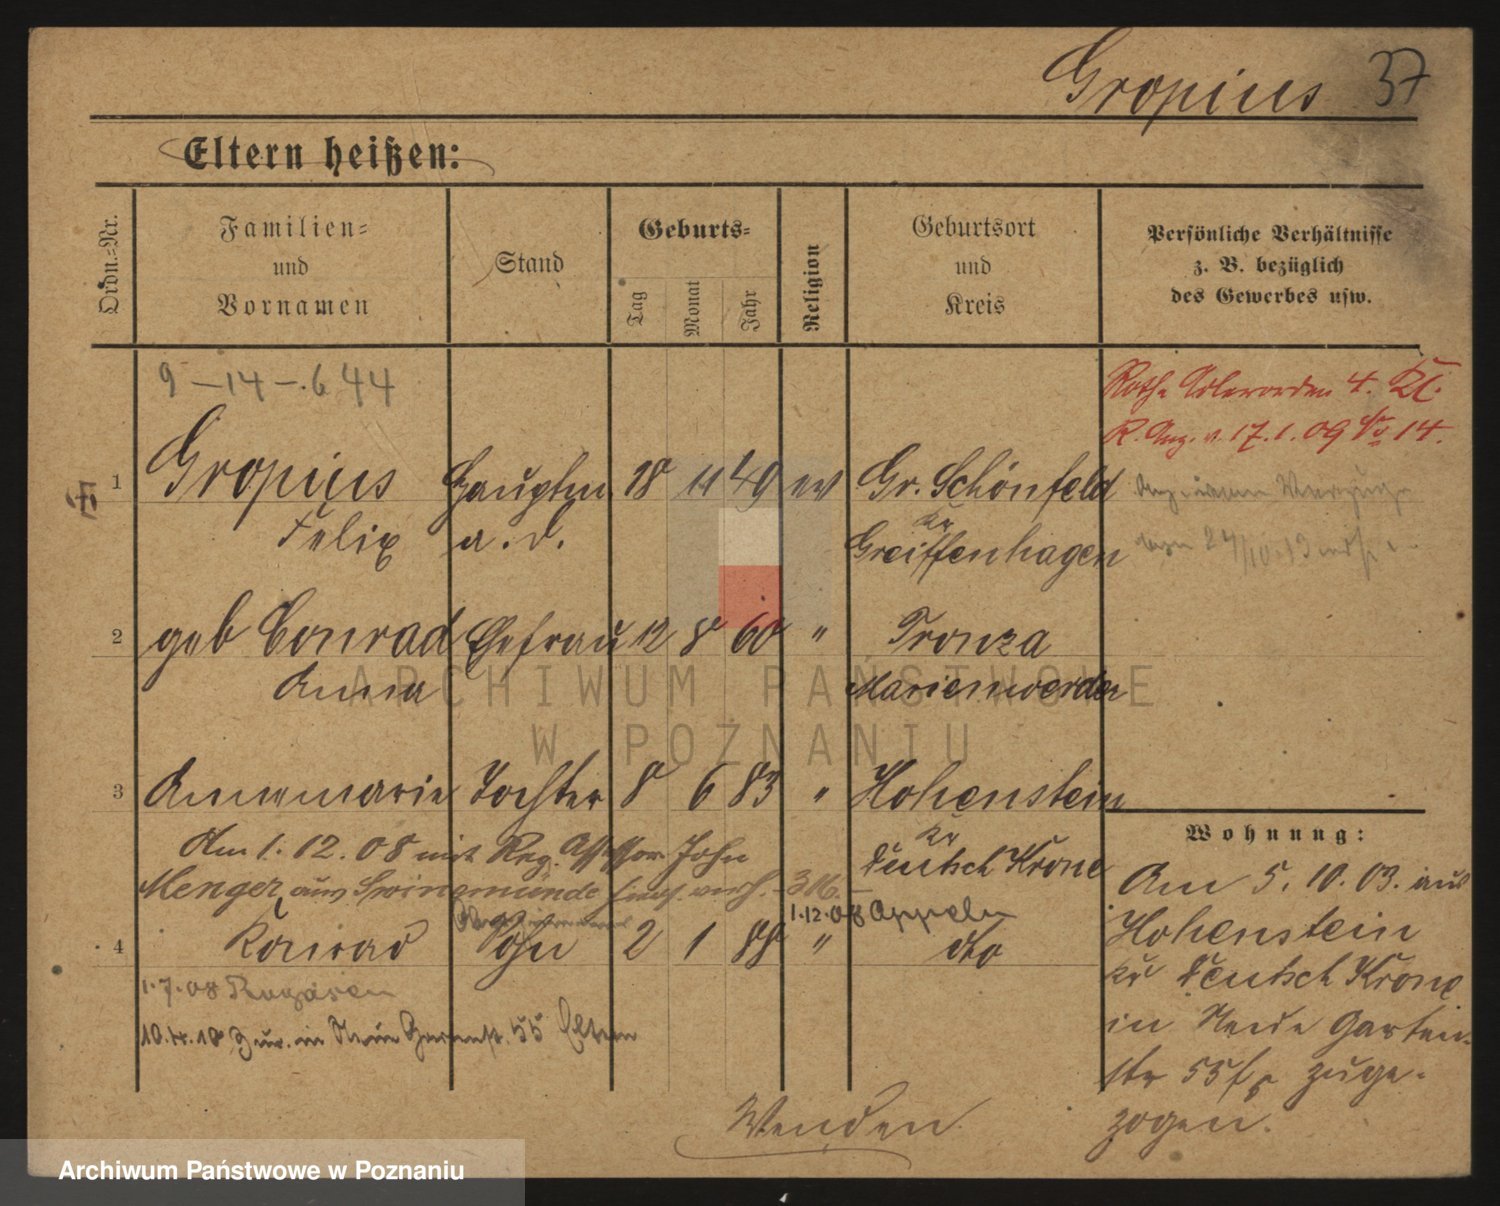 Gropius 37
Eltern heißen:
Ordn.-Nr.
Familien-
und
Vornamen
Stand
Geburts-
Tag
Monat
Jahr
Religion
Geburtsort
und
Kreis
Persönliche Verhältnisse
z. B. bezüglich
des Gewerbes usw.
9 – 14 – . 6 44
Rothe Adlerorden 4. Kl.
R. Anz. v. 17.1.09 No 14.
1 Gropius Hauptm 18 11 49 ev Gr. Schönfeld
Felix a. D. Kr
Greiffenhagen
2 geb Conrad Ehefrau 12 8 60 " Tronza
Anna Marienwerder
3 Annemarie Tochter 8 6 83 " Hohenstein
Kr
Deutsch Krone
Am 1.12.08 mit Reg. Assessor John
Menger aus Swinemünde
1.12.08 Oppeln
4 Konrad Sohn 2 1 88 " dto
1.7.08
10.4.18 Zur. in Neue Gartenstr. 55 Eltern
Wohnung:
Am 5.10.03. aus
Hohenstein
Kr Deutsch Krone
in Neue Garten-
str 55 zuge-
zogen.
Wenden
ARCHIWUM PAŃSTWOWE
W POZNANIU
Archiwum Państwowe w Poznaniu